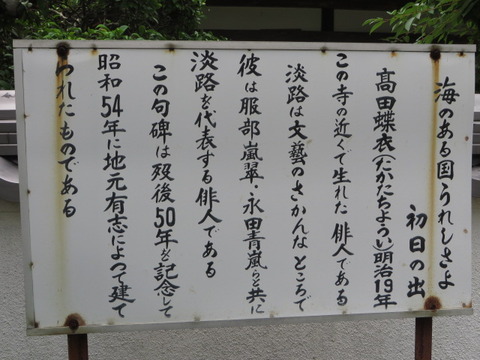 海のある国うれしさよ
初日の出
高田蝶衣(たかたちようい)明治19年
この寺の近くで生れた俳人である
淡路は文藝のさかんなところで
彼は服部嵐翠・永田青嵐らと共に
淡路を代表する俳人である
この句碑は歿後50年を記念して
昭和54年に地元有志によつて建て
られたものである